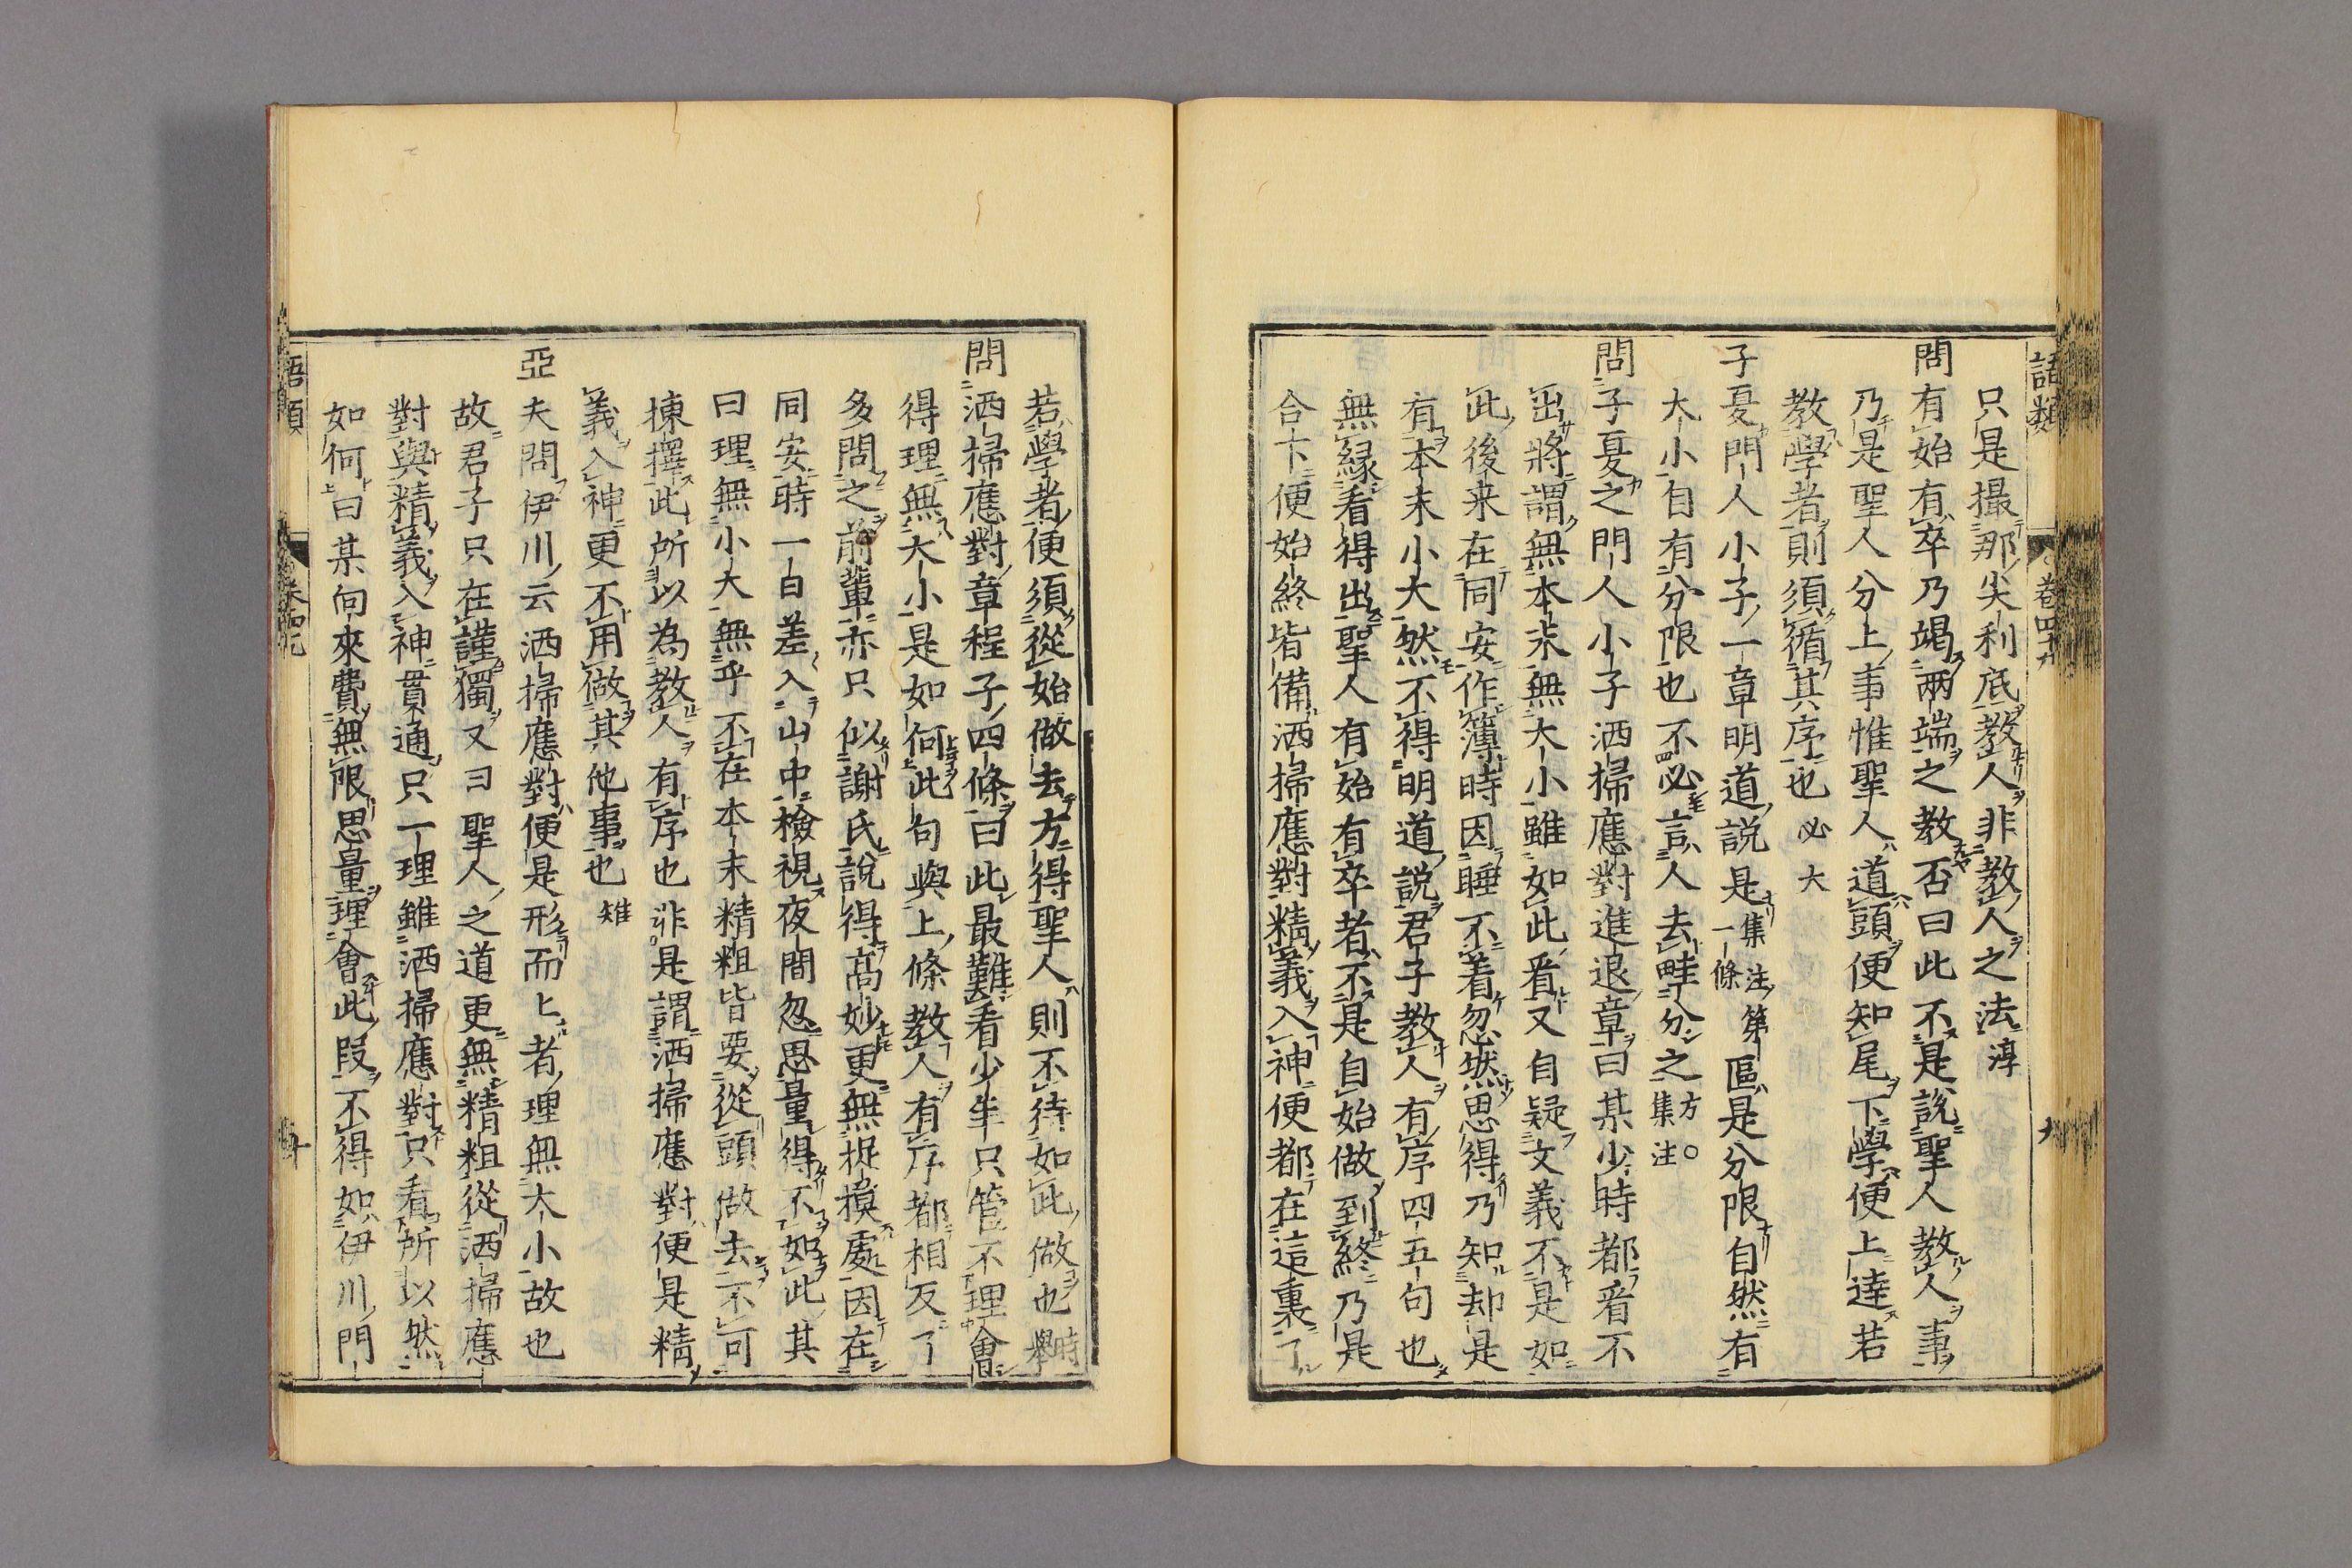 語類 卷四十九 九
只是撮那尖利底教人非教人之法淳
問有始有卒乃竭兩端之教否曰此不是說聖人教人事
乃是聖人分上事惟聖人道頭便知尾下學便上達若
教學者則須循其序也必大
子夏門人小子一章明道說是集注第一條區是分限自然有
大小自有分限也不必言人去畦分之方○集注
問子夏之門人小子洒掃應對進退章曰某少時都看不
出將謂無本末無大小雖如此看又自疑文義不是如
此後来在同安作簿時因睡不着忽然思得乃知却是
有本末小大然不得明道說君子教人有序四五句也
無緣看得出聖人有始有卒者不是自始做到終乃是
合下便始終皆備洒掃應對精義入神便都在這裏了
若學者便須從始做去方得聖人則不待如此做也時舉
問洒掃應對章程子四條曰此最難看少年只管不理會
得理無大小是如何此句與上條教人有序都相反了
多問之前輩亦只似謝氏說得高妙更無捉摸處因在
同安時一日差入山中檢視夜間忽思量得不如此其
曰理無小大無乎不在本末精粗皆要從頭做去不可
揀擇此所以為教人有序也非是謂洒掃應對便是精
義入神更不用做其他事也雉
亞夫問伊川云洒掃應對便是形而上者理無大小故也
故君子只在謹獨又曰聖人之道更無精粗從洒掃應
對與精義入神貫通只一理雖洒掃應對只看所以然
如何曰某向來費無限思量理會此段不得如伊川門
語類